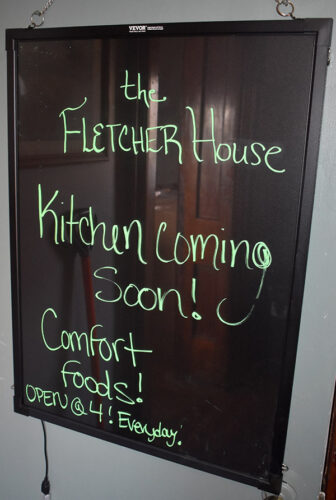 VEVOR
the
FLETCHER House
Kitchen Coming
Soon!
Comfort
Foods!
OPEN @ 4! Everyday!